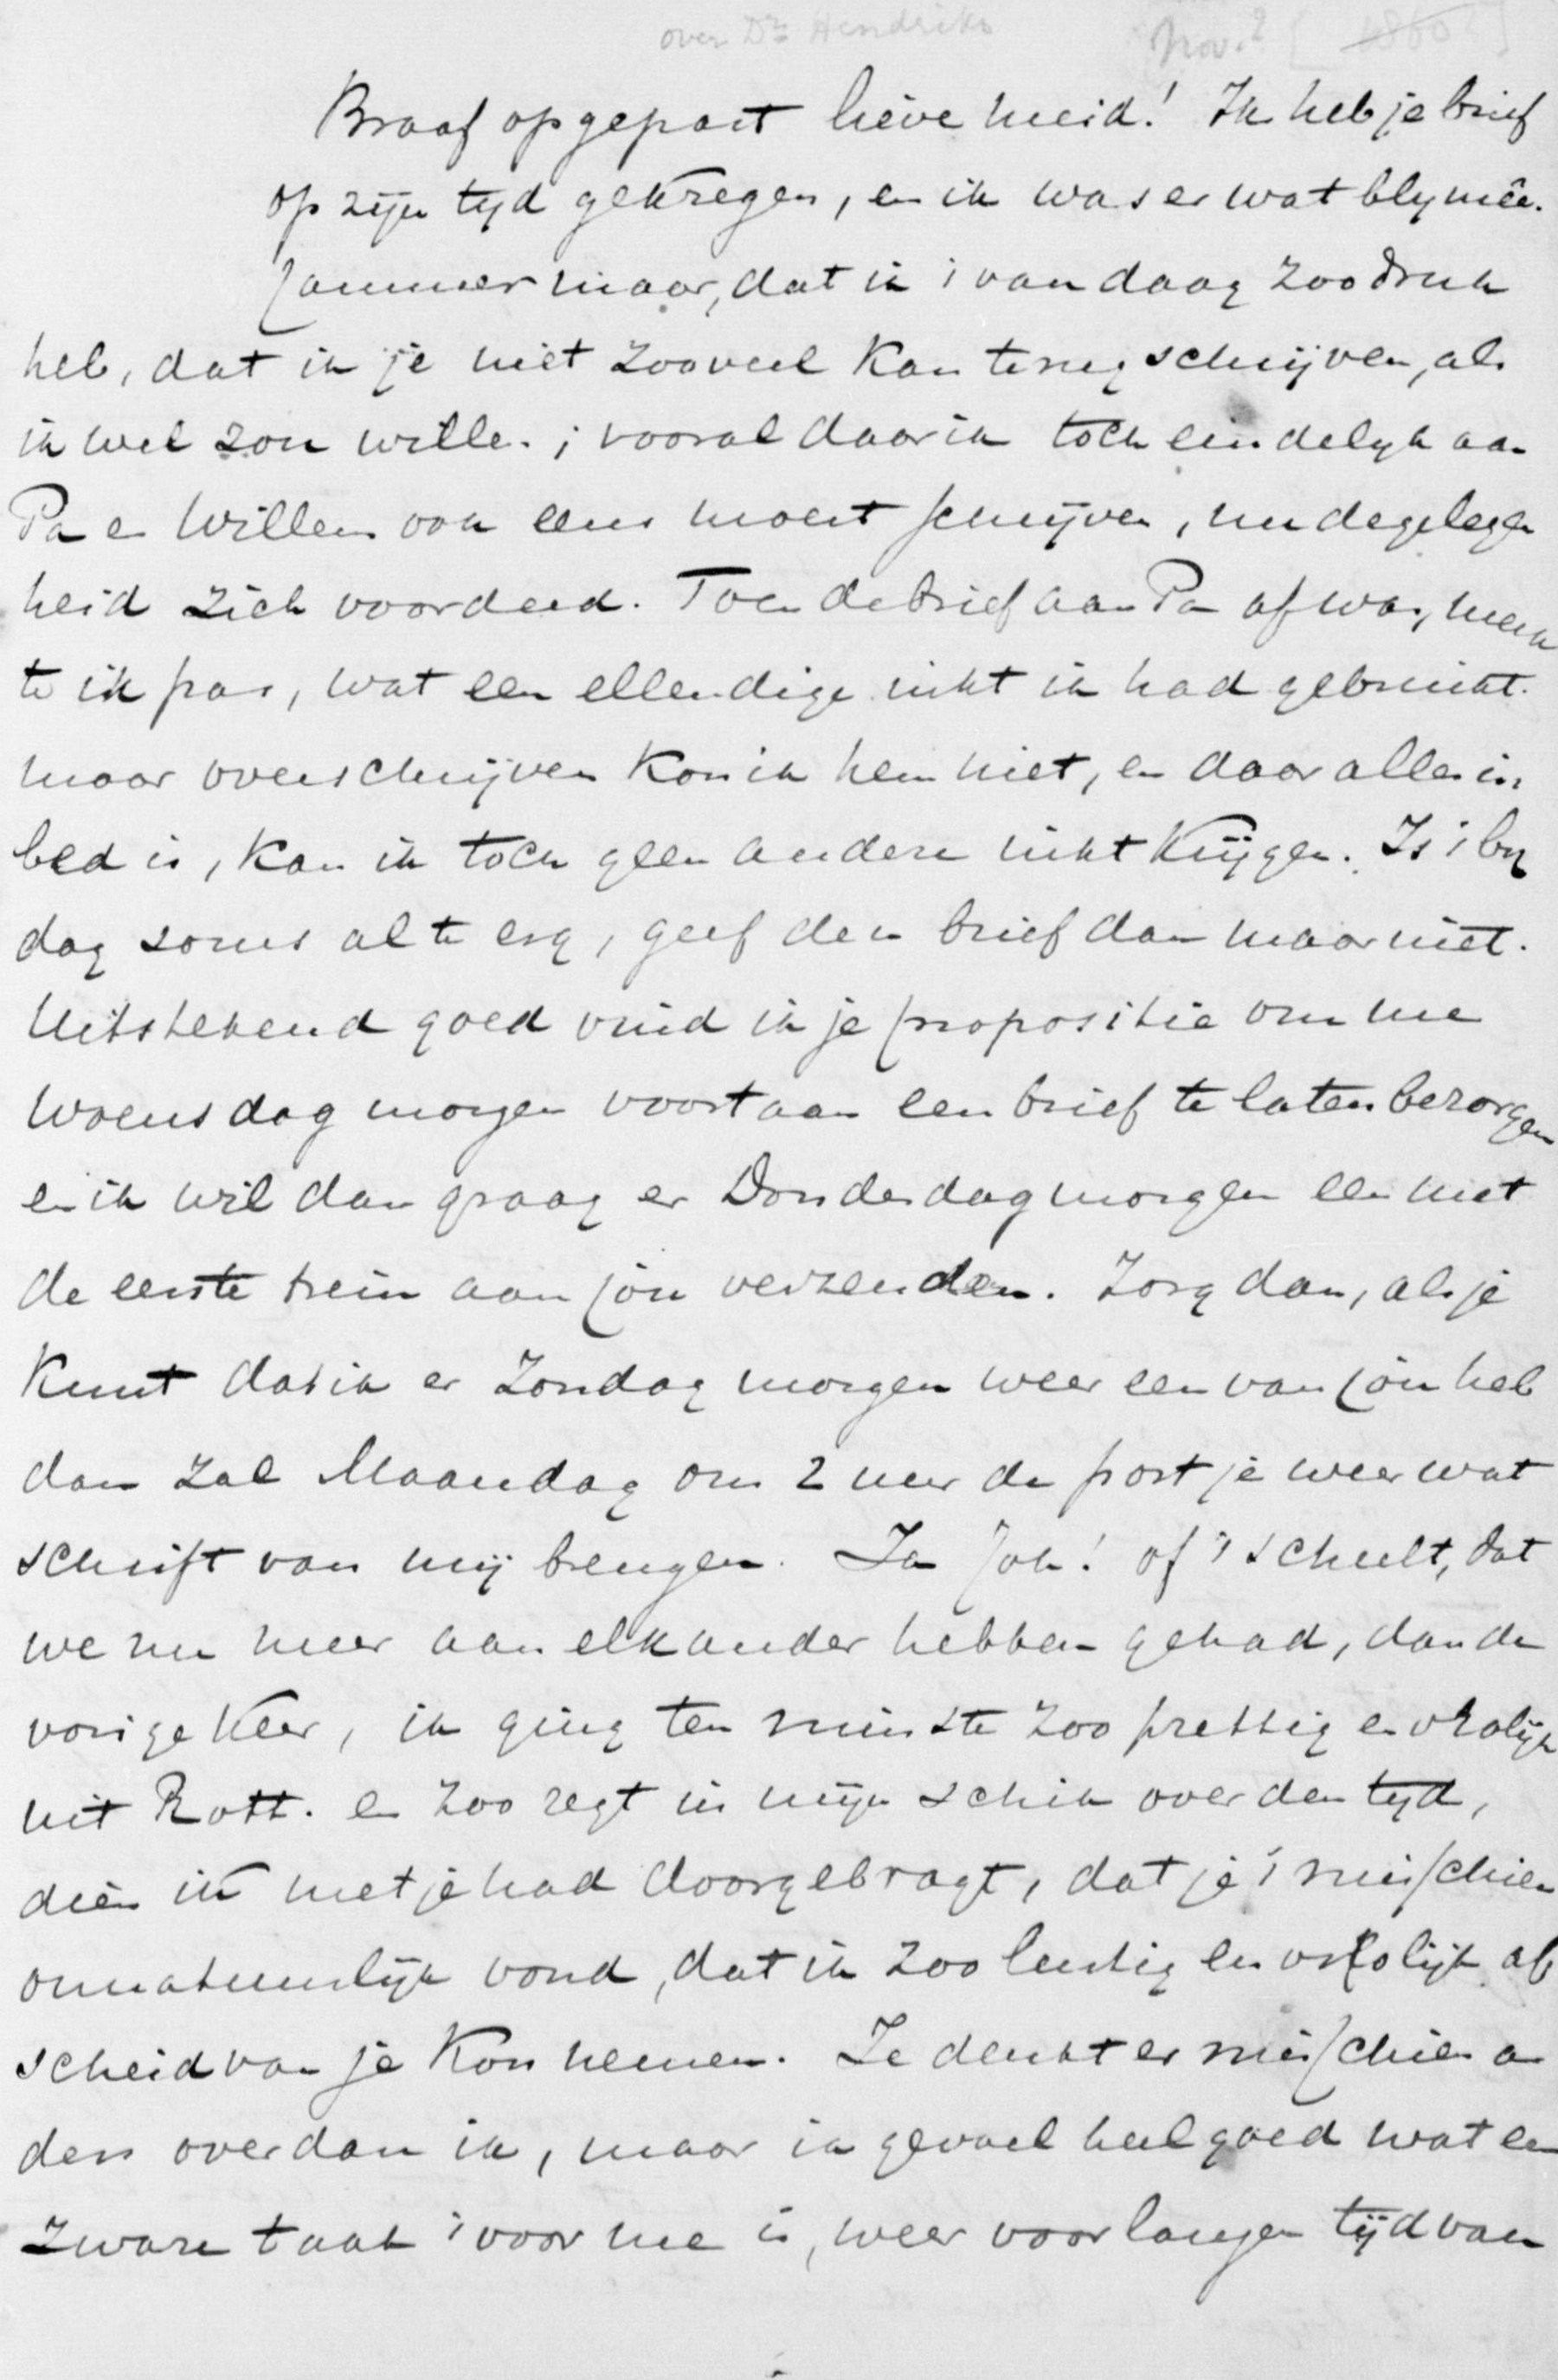 over Dr. Hendriks Nov.?
Braaf opgepast lieve meid! Ik heb je brief
op zijn tyd gekregen, en ik was er wat bly meê.
Jammer maar, dat ik 't van daag zoo druk
heb, dat ik je niet zooveel kan terugschrijven, als
ik wel zou willen; vooral daar ik toch eindelyk aan
Pa en Willem ook eens moest schrijven, nu de gelegen
heid zich voordeed. Toen de brief aan Pa af was, merk
te ik pas, wat een ellendige inkt ik had gebruikt.
maar overschrijven kon ik hem niet, en daar alles in
bed is, kan ik toch geen andere inkt krijgen. Is 't by
dag soms al te erg, geef den brief dan maar niet.
Uitstekend goed vind ik je propositie om me
Woensdag morgen voortaan een brief te laten bezorgen
en ik wil dan graag er Donderdagmorgen een met
de eerste trein aan joù verzenden. Zorg dan, als je
kunt dat ik er Zondag morgen weer een van joù heb
dan zal Maandag om 2 uur de post je weer wat
schrift van mij brengen. Ja Joh! of 't scheelt, dat
we nu meer aan elkander hebben gehad, dan de
vorige keer, ik ging ten minste zoo prettig en vrolijk
uit Rott. en zoo regt in mijn schik over den tyd,
dien ik met je had doorgebragt, dat je 't misschien
onnatuurlijk vond, dat ik zoo lustig en vrolijk af
scheid van je kon nemen. Je denkt er misschien an
ders over dan ik, maar ik gevoel heel goed wat een
zware taak 't voor me is, weer voor langen tijd van